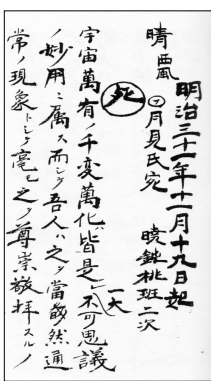 明治三十一年十一月十九日起
晴 風
月見氏宛 桃班二次
死
一大
宇宙萬有ノ千変萬化皆是レ不可思議
ノ妙用ニ属ス而シテ吾人ハ之ヲ當然通
常ノ現象トシテ毫モ之ヲ尊崇敬拝スルノ